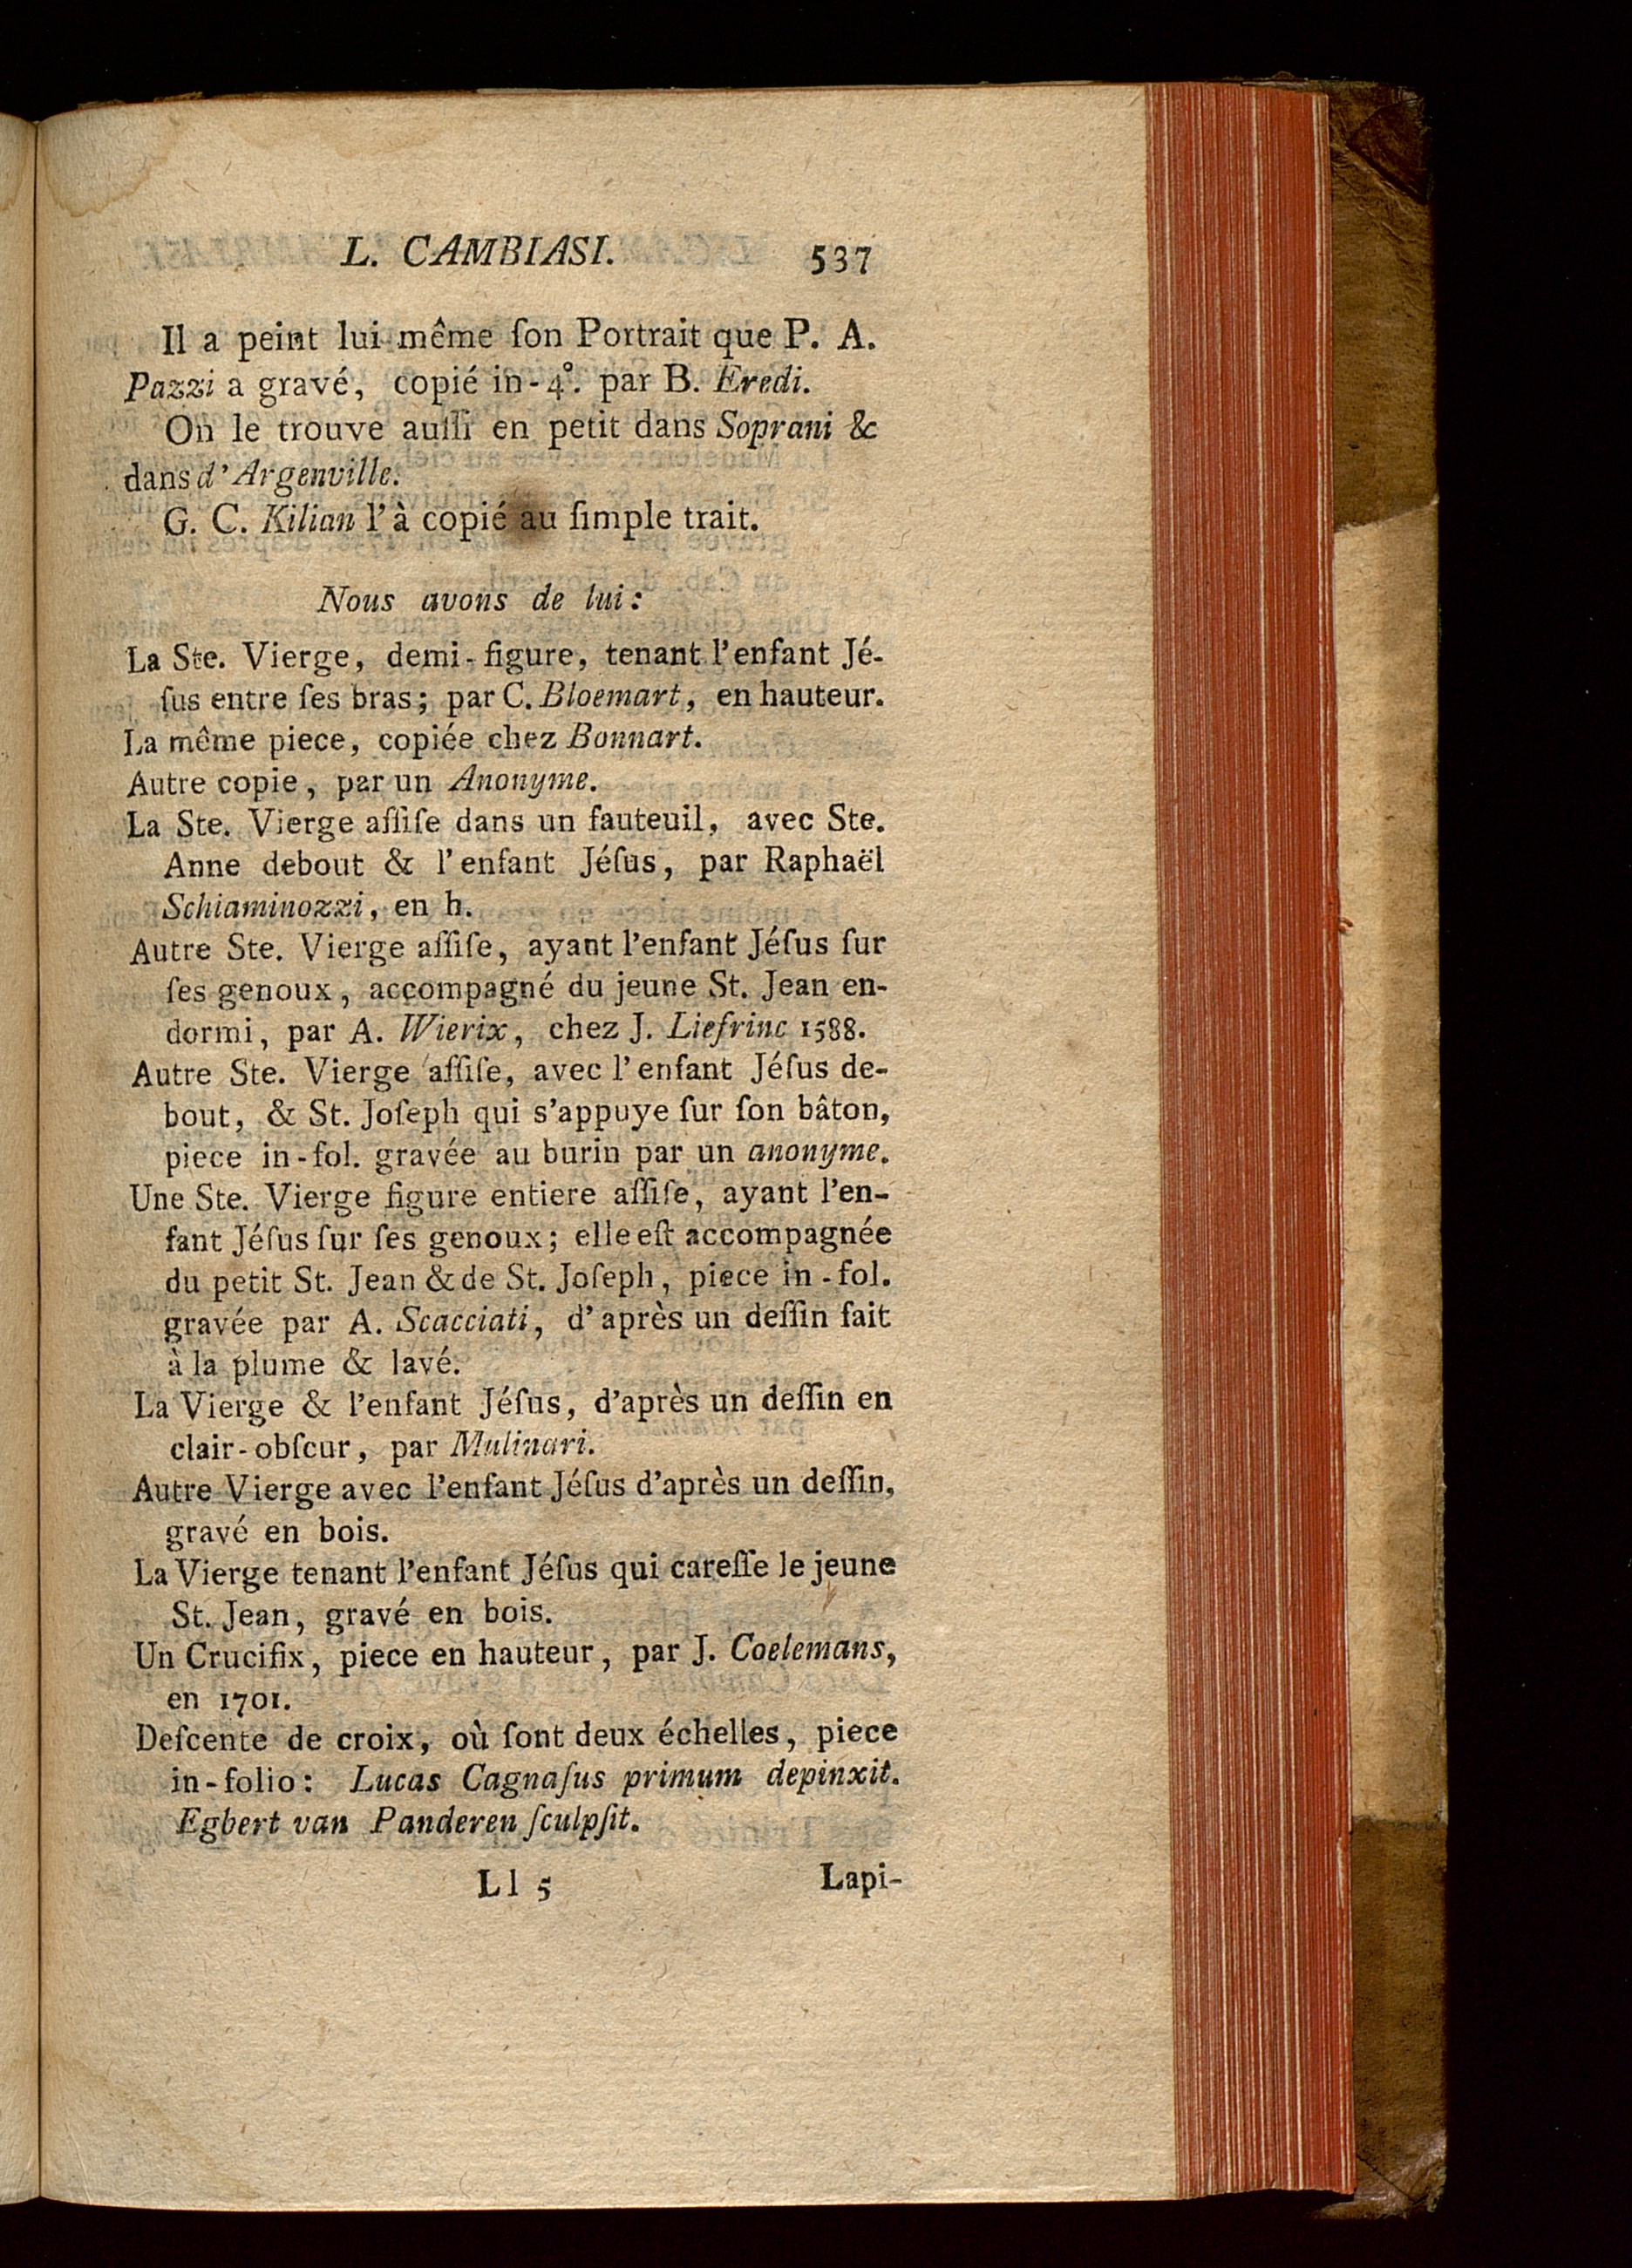 L. CAMBIASI. 537
Il a peint lui-même ſon Portrait que P. A.
Pazzi a gravé, copié in-4°. par B. Eredi.
On le trouve auſſi en petit dans Soprani &
dans d'Argenville.
G. C. Kilian l'à copié au ſimple trait.
Nous avons de lui:
La Ste. Vierge, demi-figure, tenant l'enfant Jé-
ſus entre ſes bras; par C. Bloemart, en hauteur.
La même piece, copiée chez Bonnart.
Autre copie, par un Anonyme.
La Ste. Vierge aſſiſe dans un fauteuil, avec Ste.
Anne debout & l'enfant Jéſus, par Raphaël
Schiaminozzi, en h.
Autre Ste. Vierge aſſiſe, ayant l'enfant Jéſus ſur
ſes genoux, accompagné du jeune St. Jean en-
dormi, par A. Wierix, chez J. Liefrinc 1588.
Autre Ste. Vierge aſſiſe, avec l'enfant Jéſus de-
bout, & St. Joſeph qui s'appuye ſur ſon bâton,
piece in-fol. gravée au burin par un anonyme.
Une Ste. Vierge figure entiere aſſiſe, ayant l'en-
fant Jéſus ſur ſes genoux; elle eſt accompagnée
du petit St. Jean & de St. Joſeph, piece in-fol.
gravée par A. Scacciati, d'après un deſſin fait
à la plume & lavé.
La Vierge & l'enfant Jéſus, d'après un deſſin en
clair-obſcur, par Mulinari.
Autre Vierge avec l'enfant Jéſus d'après un deſſin,
gravé en bois.
La Vierge tenant l'enfant Jéſus qui careſſe le jeune
St. Jean, gravé en bois.
Un Crucifix, piece en hauteur, par J. Coelemans,
en 1701.
Deſcente de croix, où ſont deux échelles, piece
in-folio: Lucas Cagnaſus primum depinxit.
Egbert van Panderen ſculpſit.
Ll 5 Lapi-